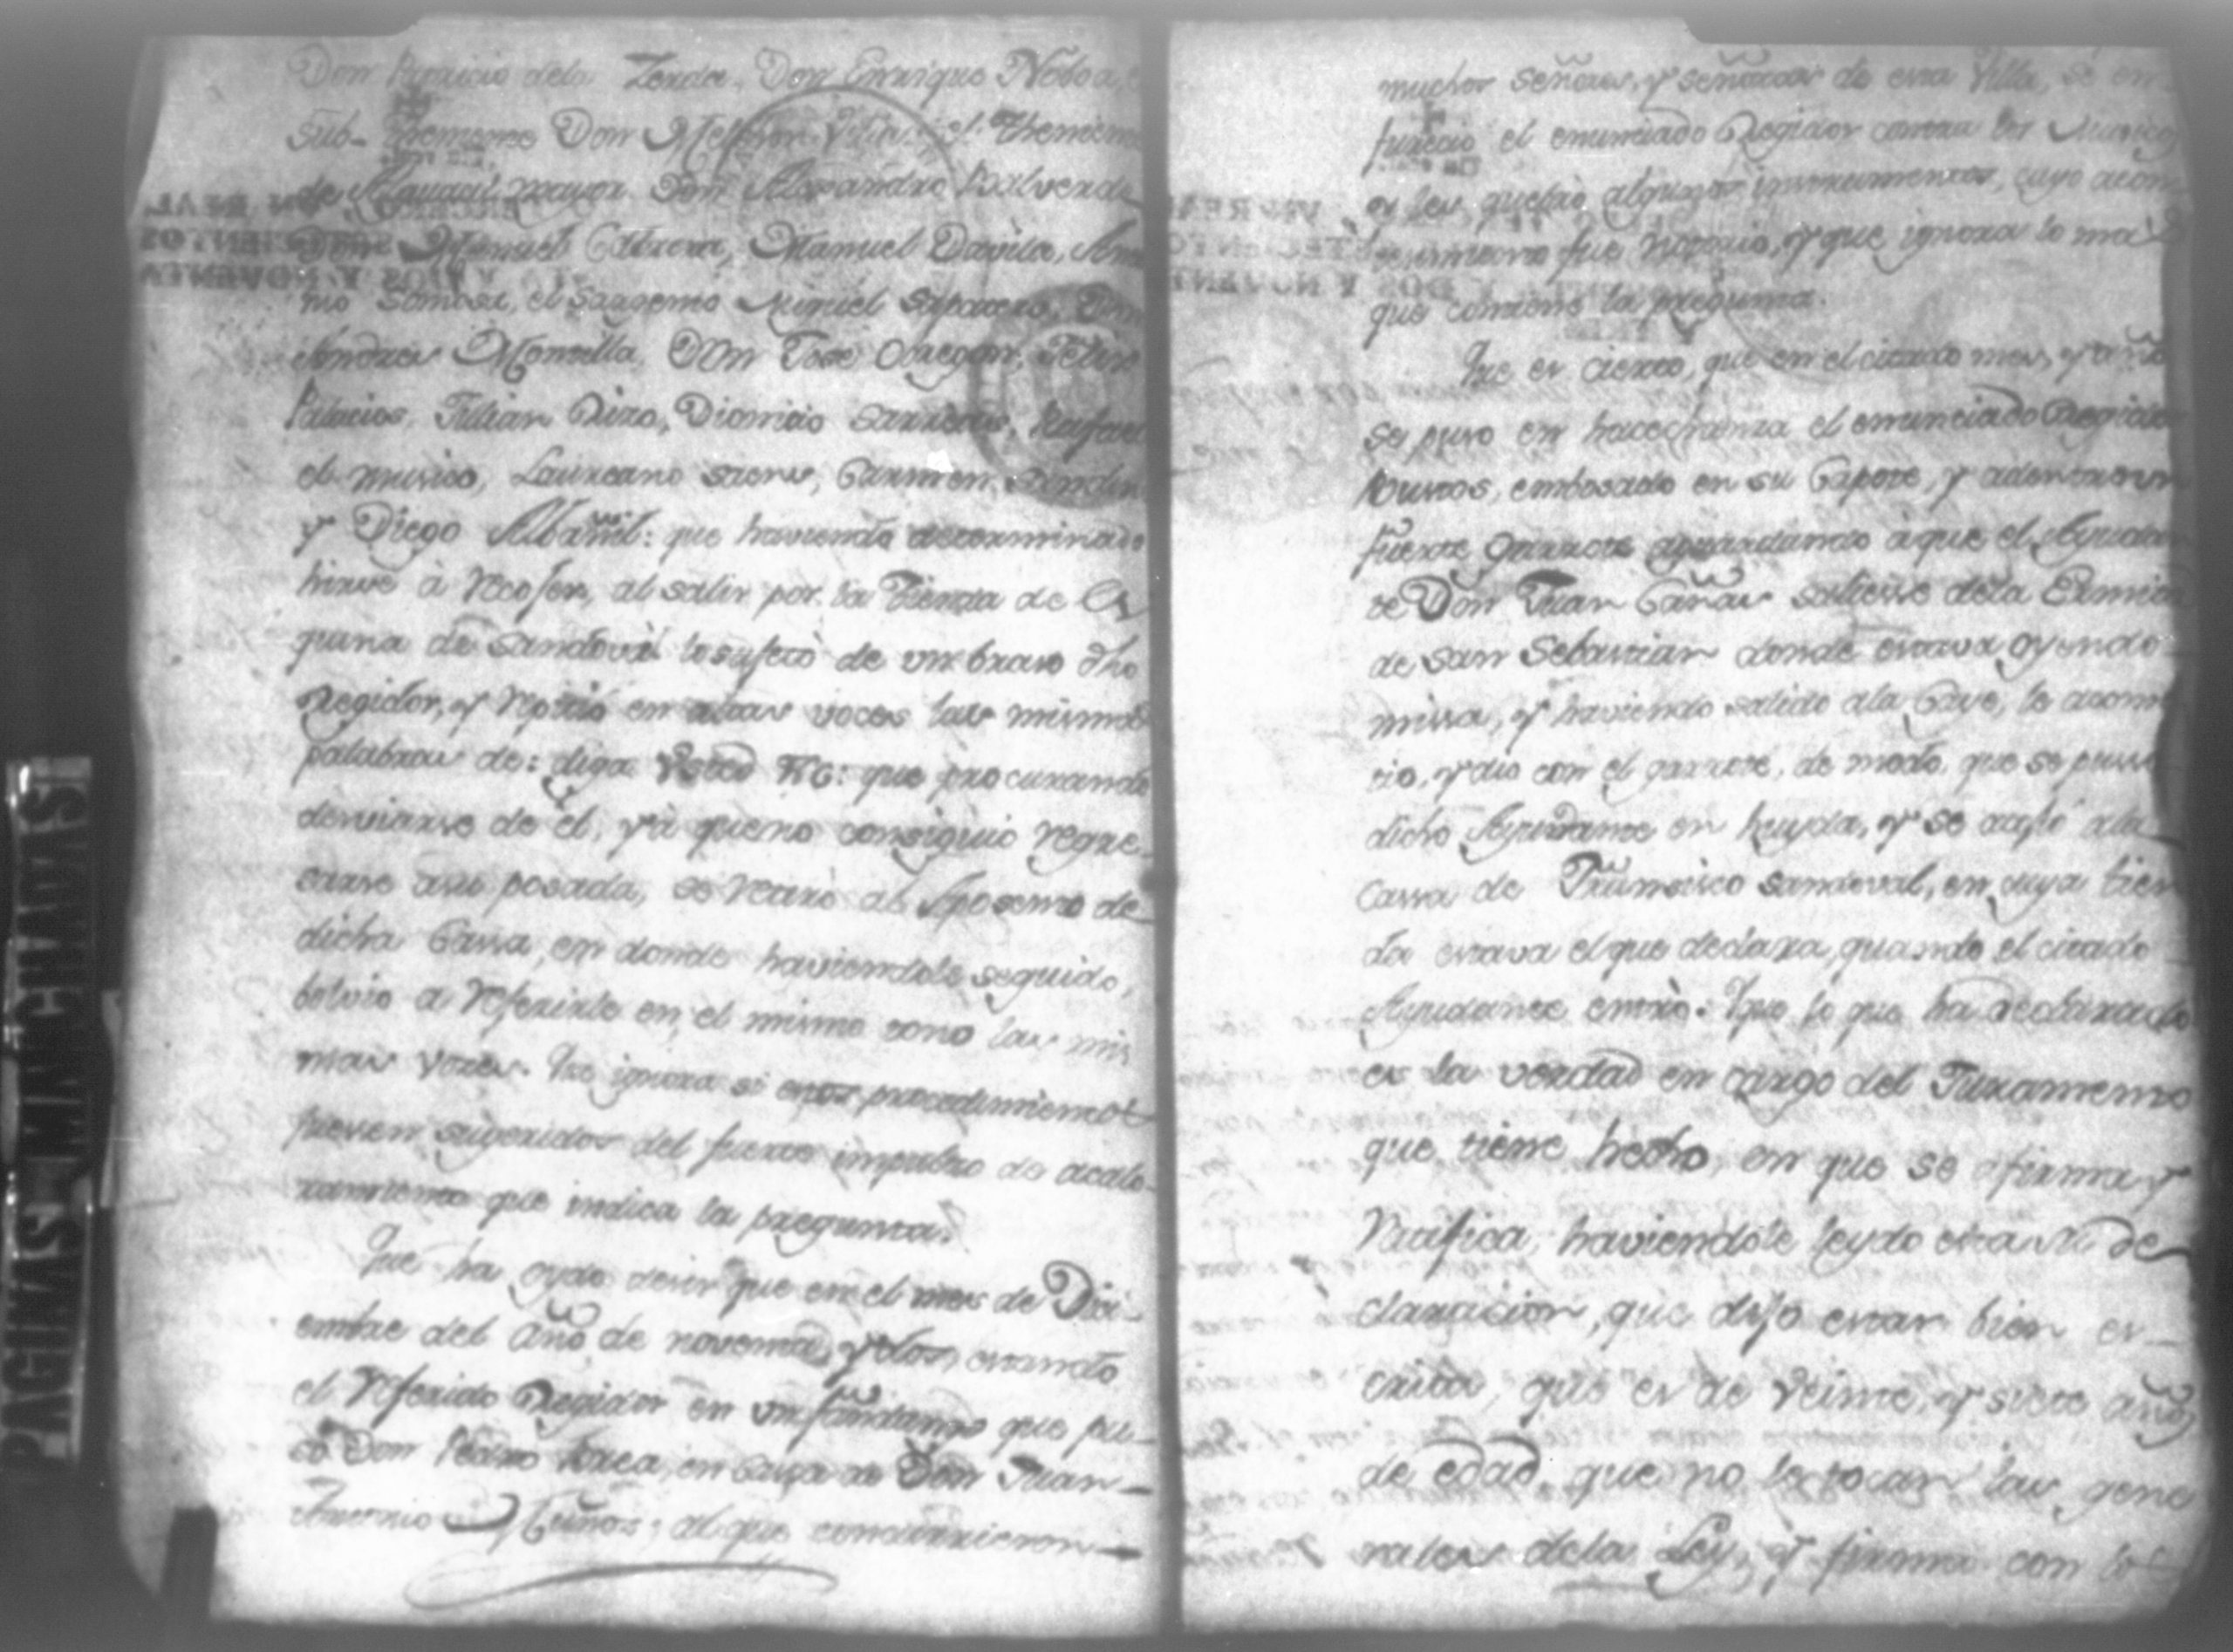 Don Patricio dela Zerda, Don Enrrique Noboa, e
sub-theniente Don Melchor Vila, el Theniente
de Alguacil mayor Don Alexandro Balverde
Don Manuel Cabrera, Manuel Davila, Anto
nio Somosa, el Sargento Miguel Saparero, Don
Andres Montilla, Don Jose Obregon, Felix
Palacios, Julian Rizo, Dionicio Barreto, Rafael
el musico, Laureano Saens, Carmen
y Diego Albañil: que haviendo determinado
hirse à recojer, al salir por la tienda de la Es
quina de Sandoval lo sujetò de un braso dho
Regidor, y repitiò en altas voces las mismas
palabras de: diga Usted &c: que procurando
desviarse de èl, yà que no consiguiò regre-
sarse a su posada, se retirò al Aposento de
dicha Cassa, en donde haviendole seguido,
bolvio a referirle en el mismo tono las mis
mas vozes. Que ignora si estos procedimientos
fuesen sugeridos del fuerte impulso de acalo-
ramiento que indica la pregunta.
Que ha oydo desir que en el mes de Dici-
embre del año de noventa, y dos, estando
el referido Regidor en un fandango que pu-
so Don Pedro Baca, en Cassa de Don Juan
Antonio Muños, al que concurrieron
muchos señores, y señoras de esta Villa, se en
furecio el enunciado Regidor contra los Musicos
y les quebrò algunos instrumentos, cuyo acon
tesimiento fue notorio, y que ignora lo mas
que contiene la pregunta.
Que es cierto, que en el citado mes, y año
se puso en hacechansa el enunciado Regidor
Bustos, embosado en su Capote, y adentro un
fuerte garrote aguardando à que el Ayudan
te Don Juan Cañas saliesse dela Ermita
de San Sebastian donde estava oyendo
missa, y haviendo salido ala Caye, le acome
tio, y dio con el garrote, de modo, que se puso
dicho Ayudante en huyda, y se acojiò ala
Cassa de Fransisco Sandoval, en cuya tien
da estava el que declara, quando el citado
Ayudante entrò. Que lo que ha declarado
es la verdad en cargo del Juramento
que tiene hecho, en que se afirma y
ratifica, haviendole leydo esta su de
claracion, que dijo estar bien es-
crita, que es de veinte, y siete años
de edad, que no le tocan las gene
rales dela Ley, y firma con los
PAGINAS MANCHADAS